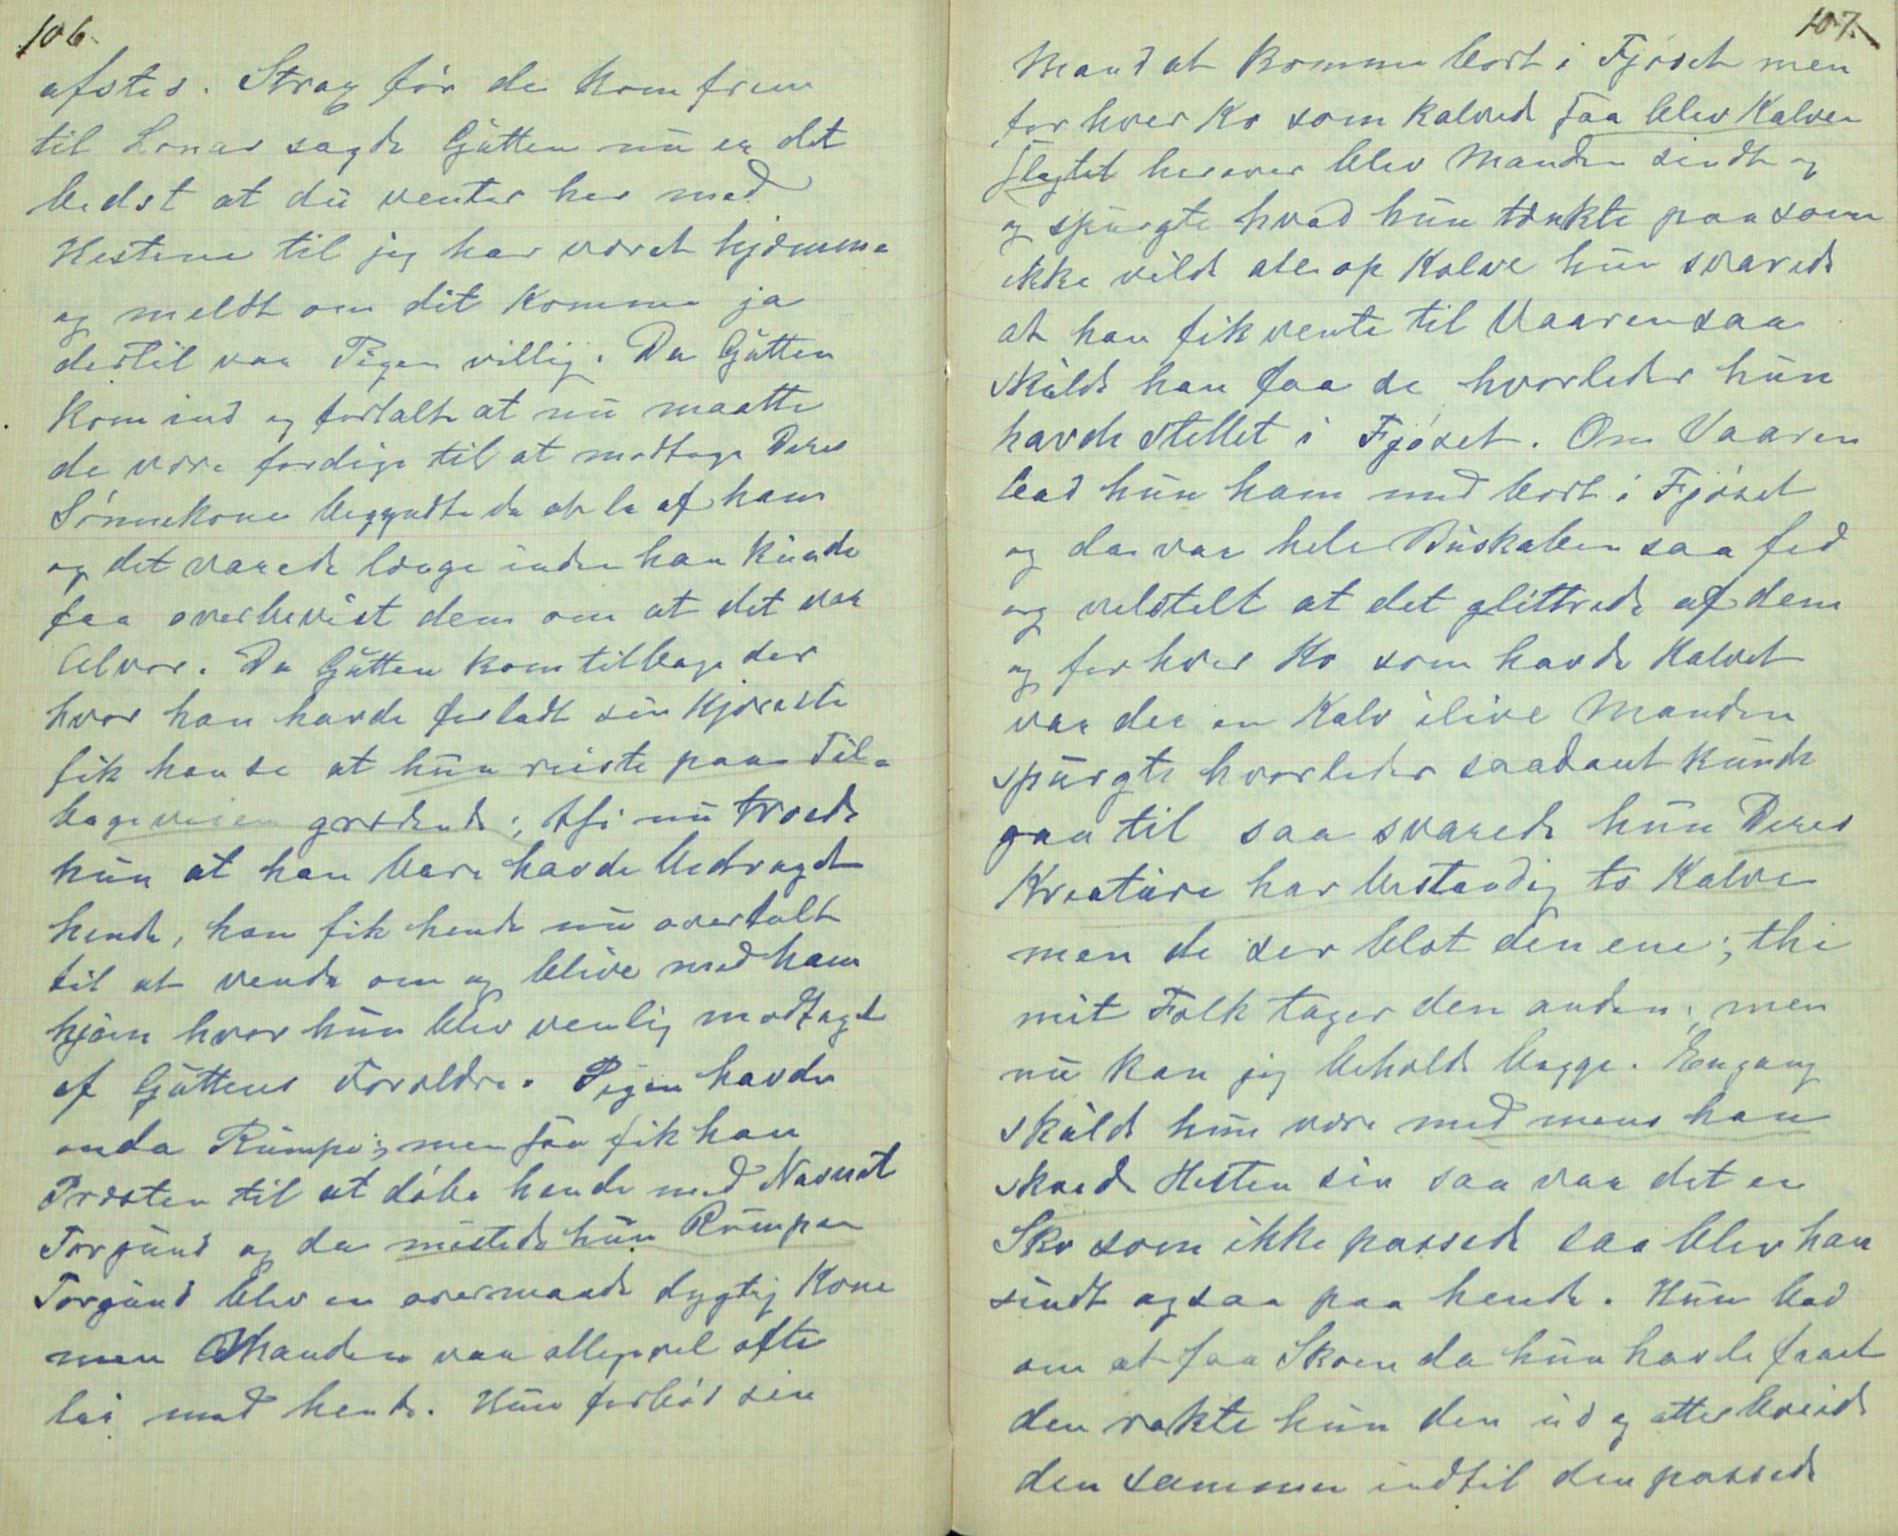 106.
afsted. Strax før de kom frem
til Lonar sagde Gutten nu er det
bedst at du venter her med
Hestene til jeg har været hjemme
og meldt om dit Komme ja
dertil var Pigen villig. Da Gutten
kom ind og fortalte at nu maatte
de være færdige til at modtage Deres
Sønnekone begyndte de at le af ham
og det varede længe inden han kunde
faa overbevist dem om at det var
Alvor. Da Gutten kom tilbage der
hvor han havde forladt sin Kjæreste
fik han se at hun reiste paa Til-
bageveien grædende; thi nu troede
hun at han bare havde bedraget
hende, han fik hende nu overtalt
til at vende om og blive med ham
hjem hvor hun blev venlig modtaget
af Guttens Forældre. Pigen havde
enda Rumpe; men saa fik han
Præsten til at døbe hende med Navnet
Torgund og da mistede hun Rumpen
Torgund blev en overmaade dygtig Kone
men Manden var alligevel ofte
lei med hende. Hun forbød sin
107.
Mand at komme bort i Fjøset men
for hver Ko som kalvede saa blev Kalven
slagtet herover blev Manden sindt og
og spurgte hvad hun tænkte paa som
ikke vilde ale op Kalve hun svarede
at han fik vente til Vaaren saa
skulde han faa se hvorledes hun
havde stellet i Fjøset. Om Vaaren
bad hun ham med bort i Fjøset
og da var hele Buskaben saa fed
og velstelt at det glittrede af dem
og for hver Ko som havde Kalvet
var der en Kalv ilive Manden
spurgte hvorledes saadant kunde
gaa til saa svarede hun Deres
Kreature har bestandig to Kalve
men de ser blot den ene; thi
mit Folk tager den anden; men
nu kan jeg beholde begge. Engang
skulde hun være med mens han
skoede Hesten sin saa var det en
Sko som ikke passede saa blev han
sindt ogsaa paa hende. Hun bad
om at faa Skoen da hun havde faaet
den rakte hun den ud og atter bøiede
den sammen indtil den passede